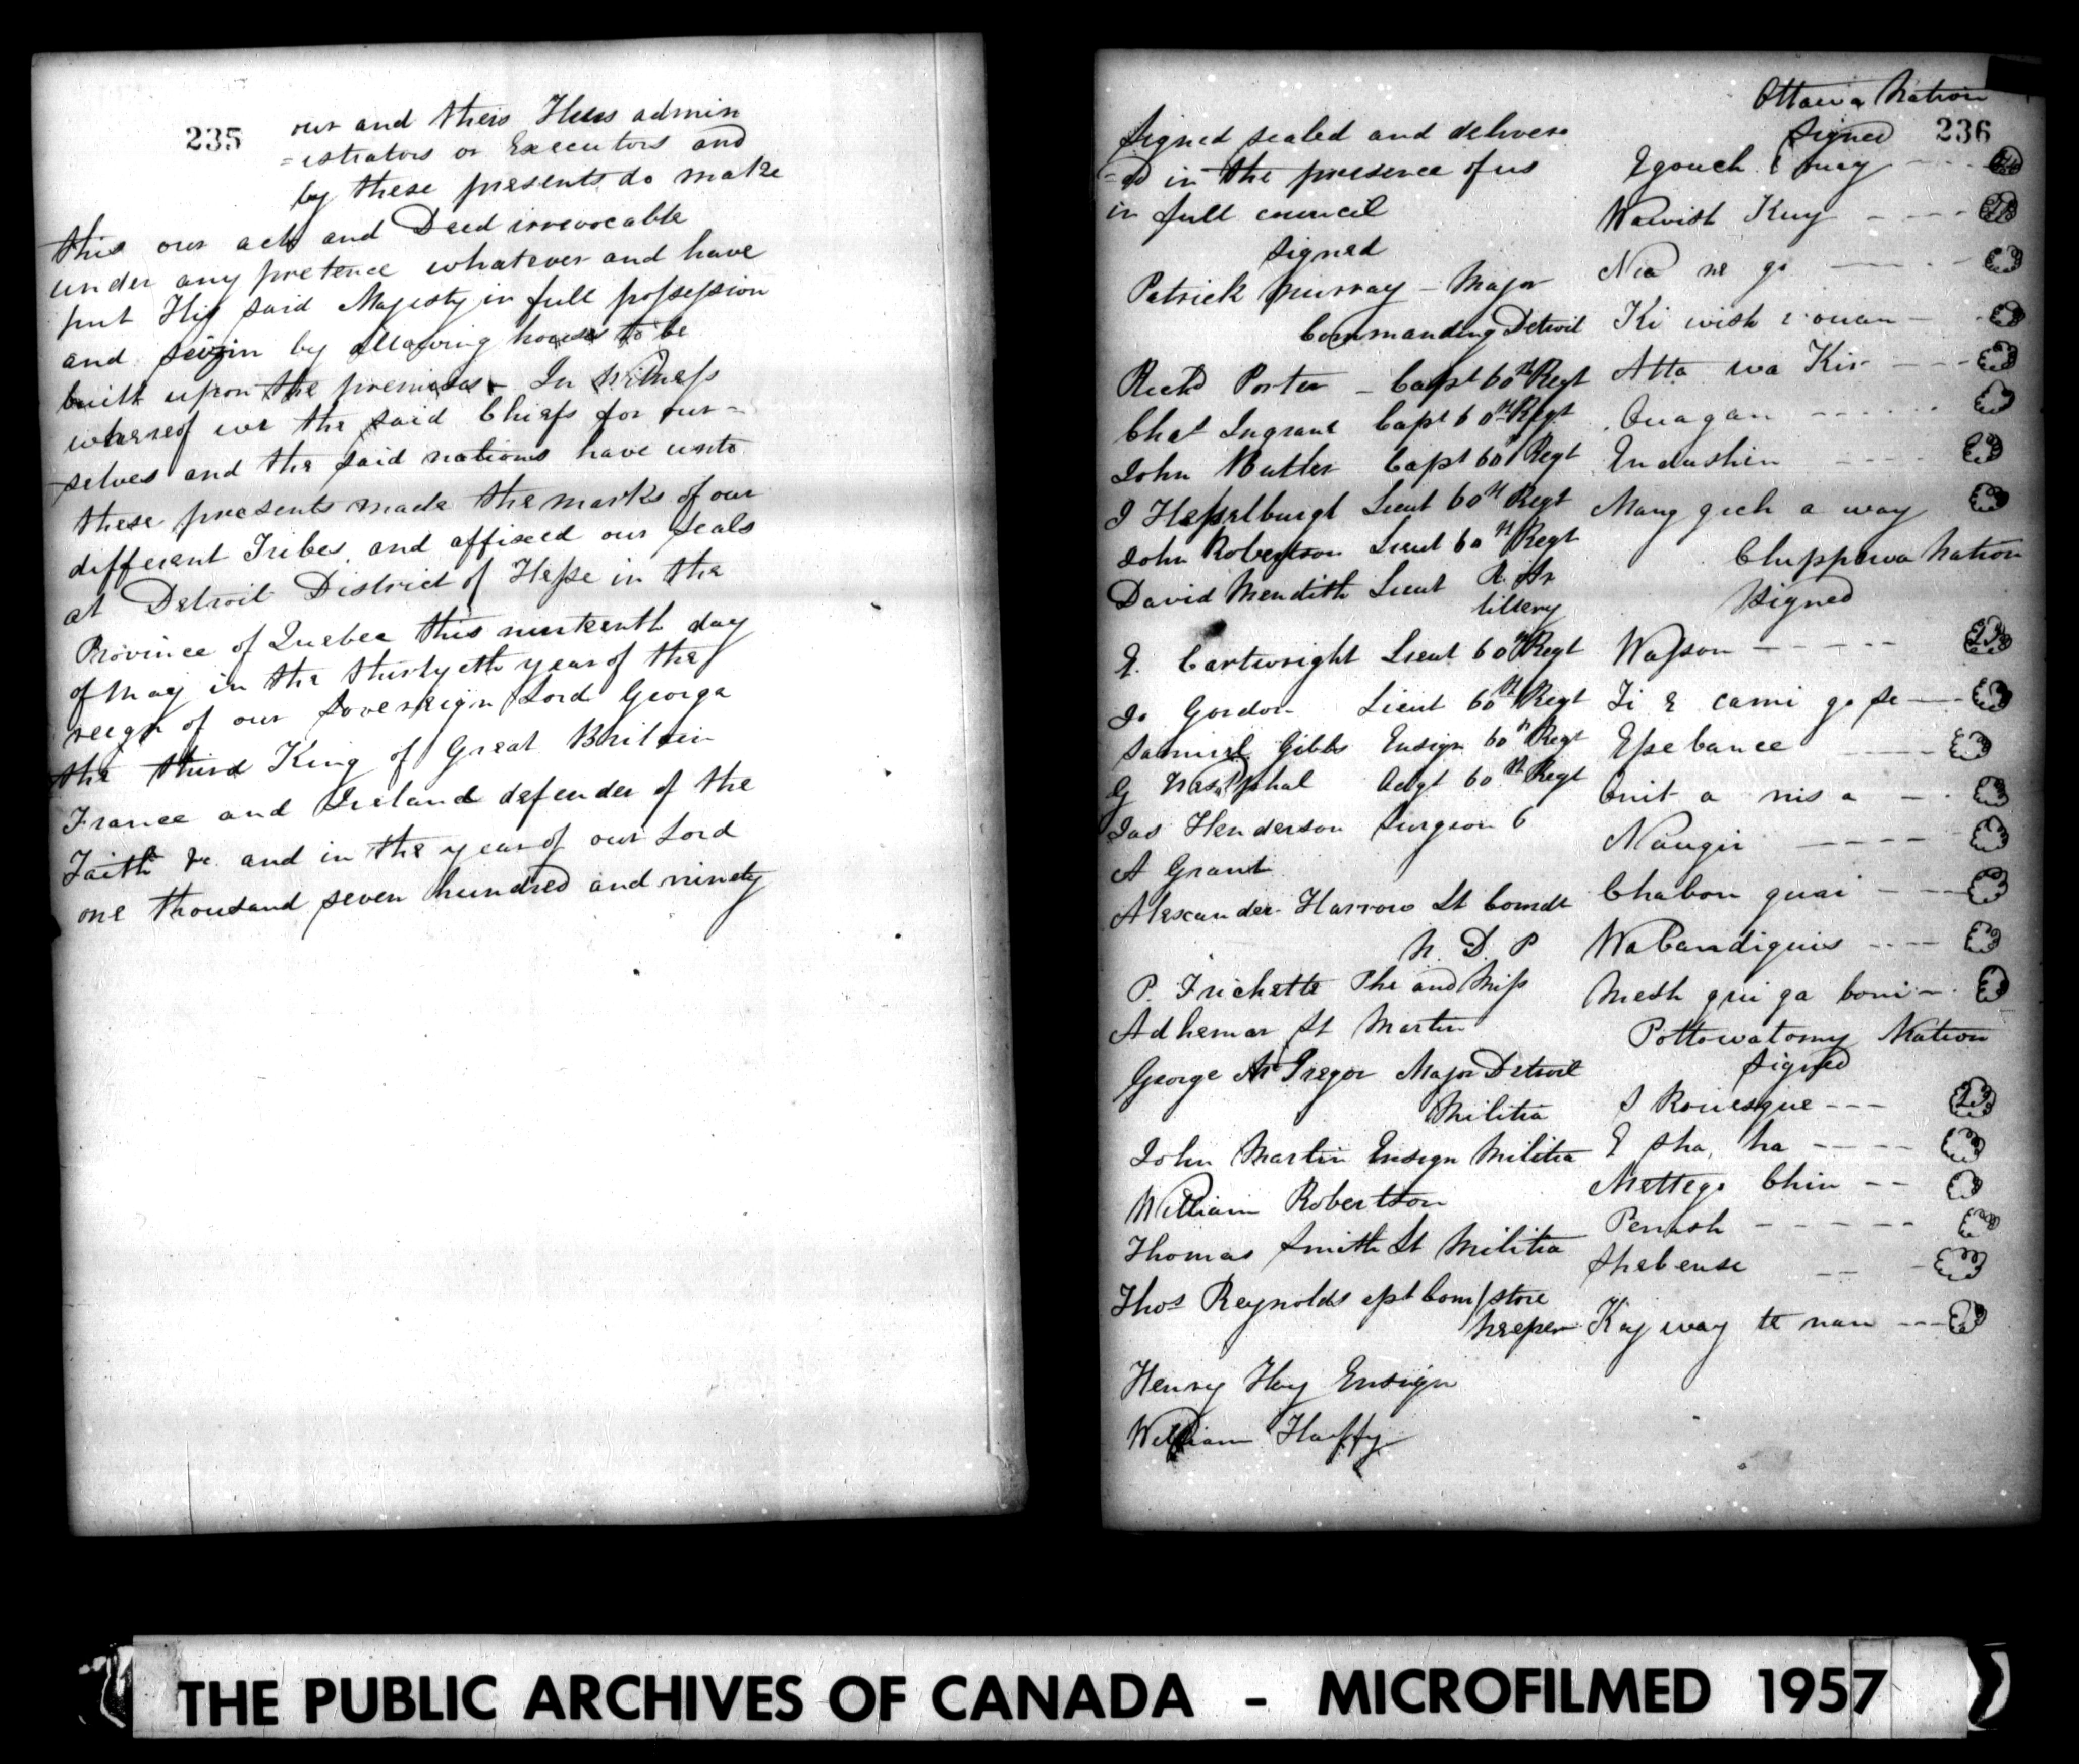 235
our and theis Heirs admin
=istrators or Executors and
by these presents do make
this our act and Deed irrevocable
under any pretence whatever and have
put His said Majesty in full possession
and seizin by allowing houses to be
built upon the premises - In Witness
whereof we the said Chiefs for our=
selves and the said nations have unto
these presents made the marks of our
different Tribes and affixed our Seals
at Detroit District of Hesse in the
Province of Quebec this ninteenth day
of May in the thirtyeth year of the
reign of our Sovereign Lord George
the third King of Great Britain
France and Ireland defender of the
Faith &c. and in the year of our Lord
one thousand seven hundred and ninety
236
Signed sealed and deliver
=ed in the presence of us
in full council
Signed
Patrick Murray - Major
Commanding Detroit
Richd Porter - Capt 60th Regt
Chas Ingram Capt 60th Regt
John Butler Capt 60th Regt
J Hesselburgt Lieut 60th Regt
John Robertson Lieut 60th Regt
David Meredith Lieut R. Ar
tillery
R. Cartwright Lieut 60th Regt
Js Gordon Lieut 60th Regt
Samuel Gibbs Ensign 60th Regt
G Westphal Adgt 60th Regt
Jas Henderson Surgeon 6
A Grant
Alexander Harrow Lt Comdt
N. D. P
P. Frichette Phe and Miss
Adhemar St Martin
George McGregor Major Detroit
Militia
John Martin Ensign Militia
William Robertson
Thomas Smith Lt Militia
Thos Reynolds Com/store
keeper
Henry Hay Ensign
William Haffy
Ottawa Nation
Signed
Egouch e ouay
Wawish Kuy
Nia ne go
Ki wish e ouan
Atta wa Kis
Ouagan
Endashin
Mang gich a way
Chippewa Nation
Signed
Wasson
Ti e cami go se
Essebance
Ouit a nis a
Naugie
Chabon quai
Wabandiguis
Mesh qui ga boui
Pottowatomy Nation
Signed
S Kouesque
E sha ha
Mettego Chin
Penash
Shebense
Kay way te nan
THE PUBLIC ARCHIVES OF CANADA - MICROFILMED 1957